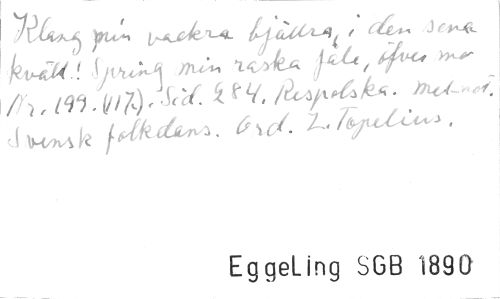 Klang min vackra bjällra, i den sena
kväll! Spring min raska fåle, öfver mo
Nr. 199. (117.). Sid. 284. Respolska. mel-not.
Svensk folkdans. Ord. Z. Topelius.
Eggeling SGB 1890